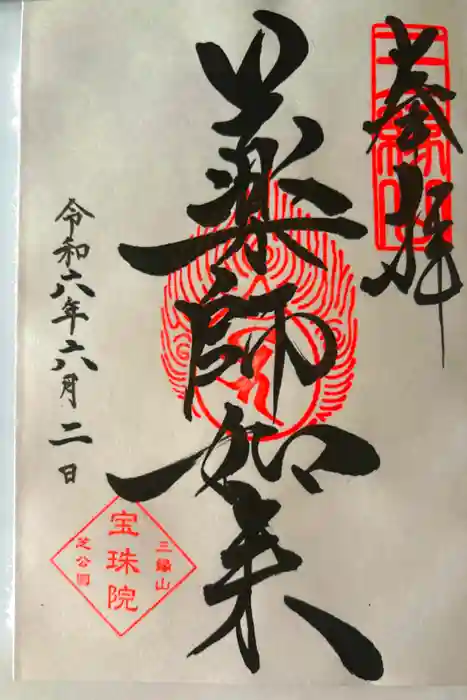 奉拝
三縁山
薬師如来
宝珠院
芝公園
令和六年六月二日